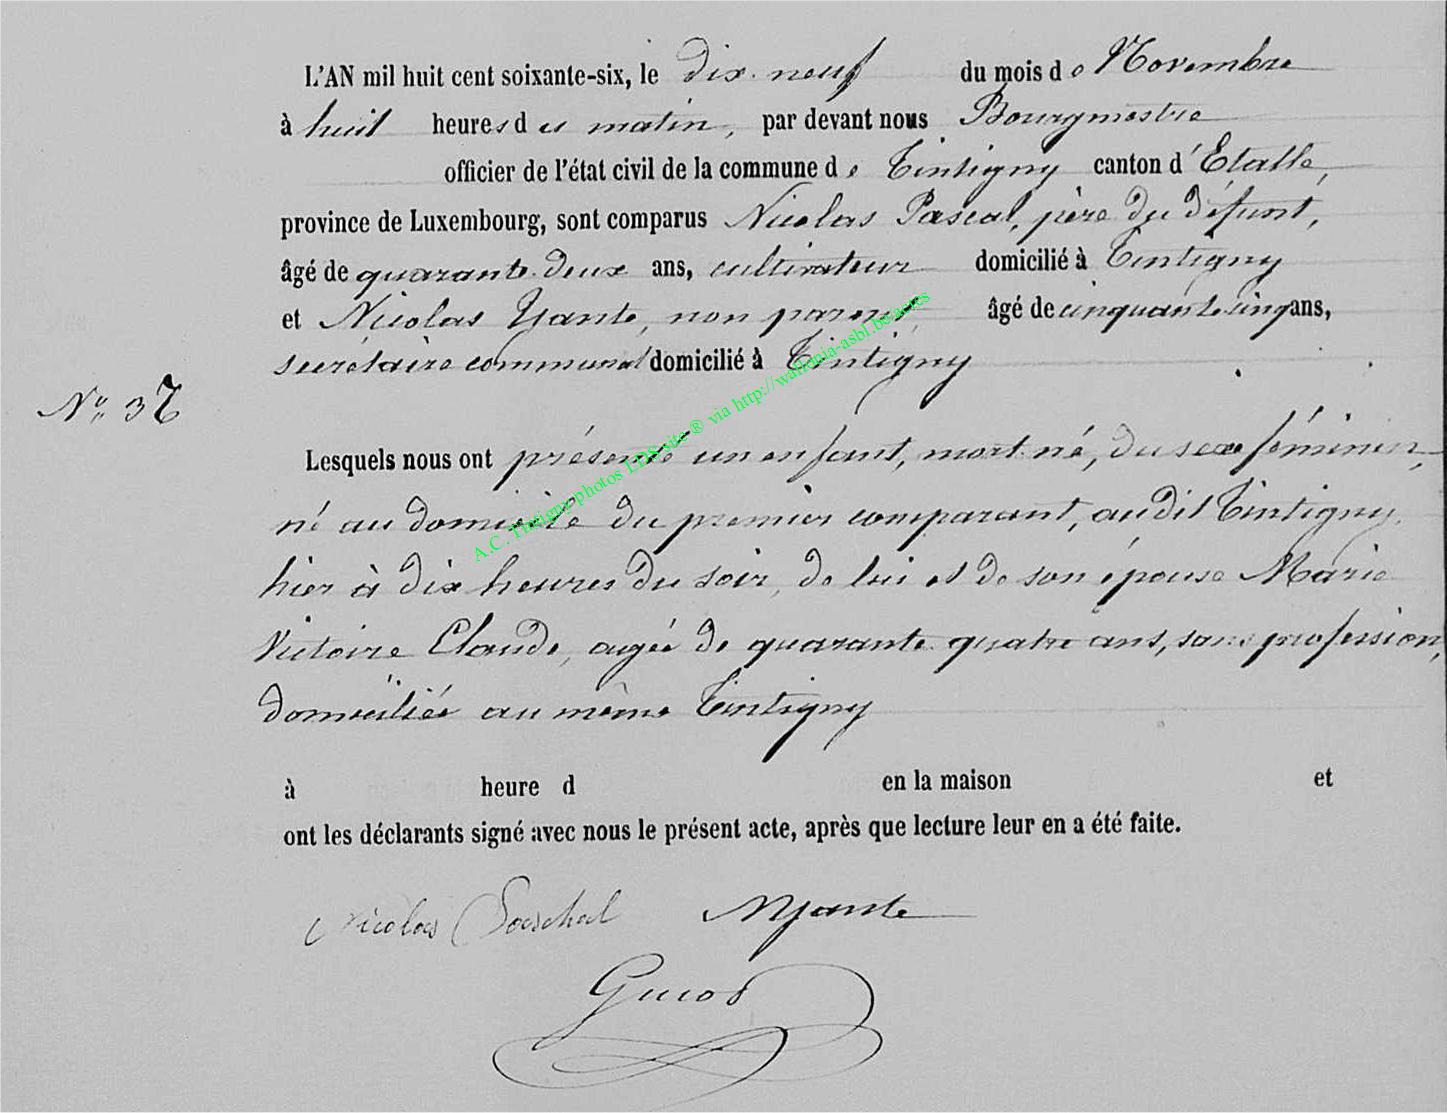 L'AN mil huit cent soixante-six, le dix-neuf du mois de Novembre
à huit heures du matin, par devant nous Bourgmestre
officier de l'état civil de la commune de Tintigny canton d'Etalle,
province de Luxembourg, sont comparus Nicolas Pascal, père du défunt,
âgé de quarante-deux ans, cultivateur domicilié à Tintigny
et Nicolas Yante, non parent, âgé de cinquante-cinq ans,
secrétaire communal domicilié à Tintigny
N° 37
Lesquels nous ont présenté un enfant, mort-né, du sexe féminin,
né au domicile du premier comparant, audit Tintigny,
hier à dix heures du soir, de lui et de son épouse Marie
Victoire Claude, agée de quarante-quatre ans, sans profession,
domiciliée au même Tintigny
à heure d en la maison et
ont les déclarants signé avec nous le présent acte, après que lecture leur en a été faite.
Nicolas Paschal NYante
A.C. Tintigny photos LDS-site ® via http://wallonia-asbl.be/actes